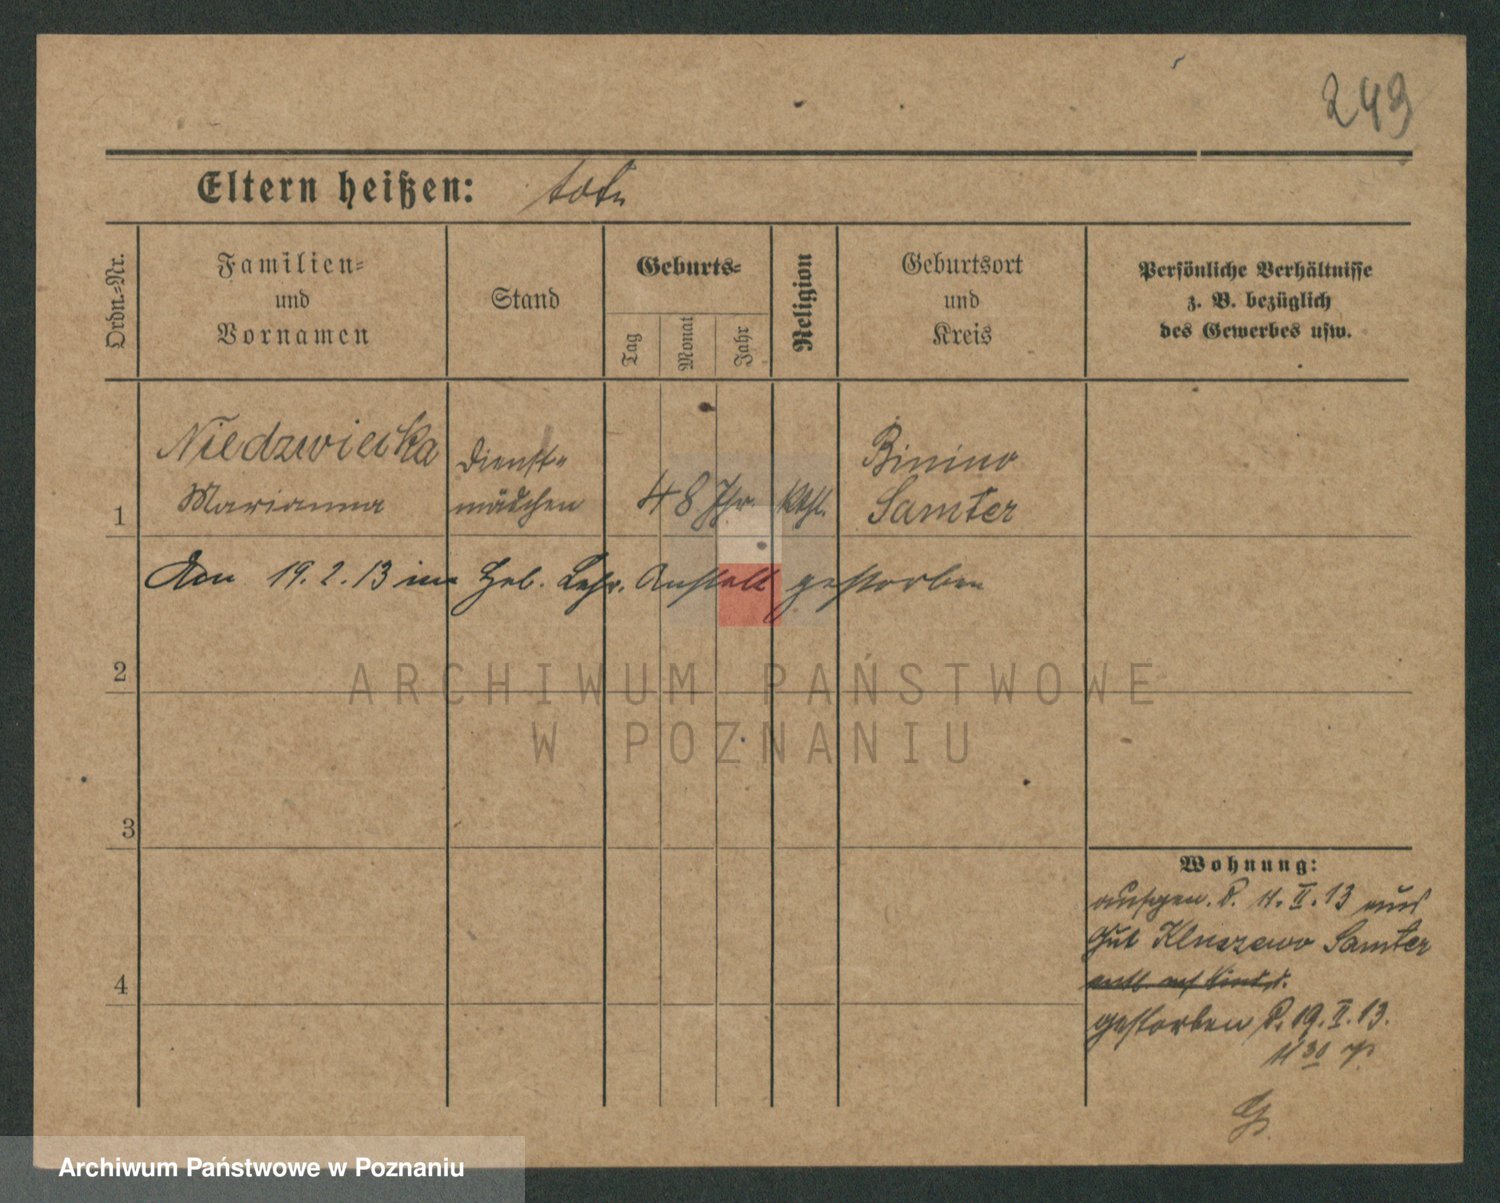 249
Eltern heißen: tot
Ordn.-Nr.
Familien-
und
Vornamen
Stand
Geburts-
Tag
Monat
Jahr
Religion
Geburtsort
und
Kreis
Persönliche Verhältnisse
z. B. bezüglich
des Gewerbes usw.
1
Niedzwiecka
Marianna
Dienst-
mädchen
48 Jhr.
Kthl.
Binino
Samter
Den 19. 2. 13 in Heb. Lehr. Anstalt gestorben
2
3
4
Wohnung:
aufgen. d. 11. II. 13 aus
Gut Kluszewo Samter
gestorben d. 19. II. 13.
11 30
ARCHIWUM PAŃSTWOWE
W POZNANIU
Archiwum Państwowe w Poznaniu